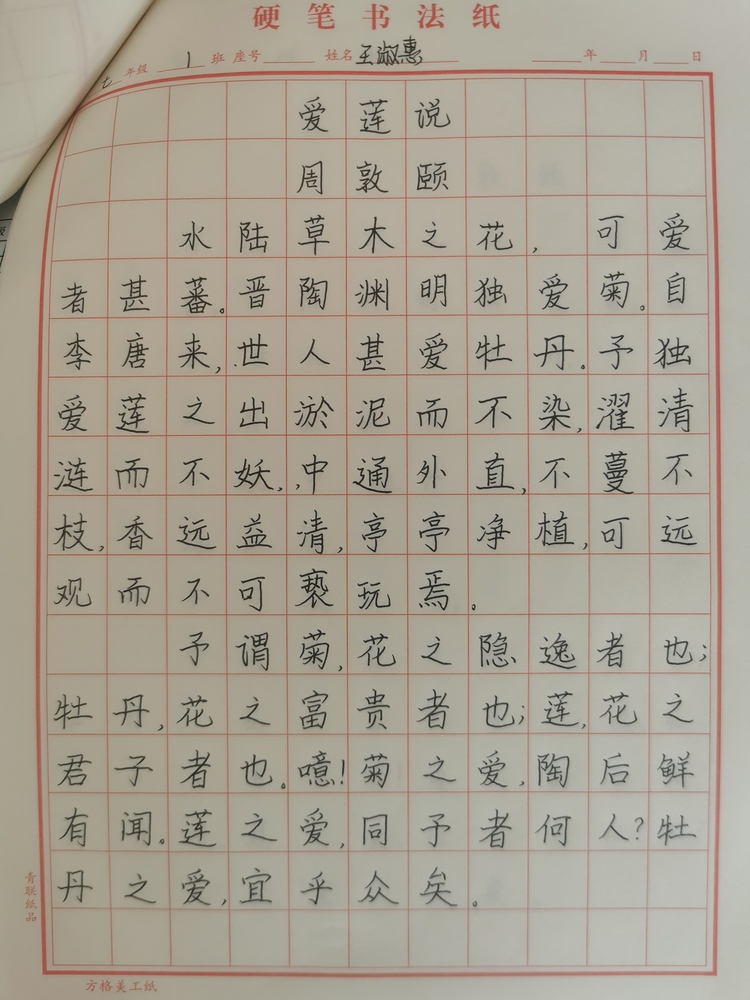 硬笔书法纸
七年级 1 班 座号 姓名 王淑惠 年 月 日
爱莲说
周敦颐
水陆草木之花,可爱
者甚蕃。晋陶渊明独爱菊。自
李唐来,世人甚爱牡丹。予独
爱莲之出淤泥而不染,濯清
涟而不妖,中通外直,不蔓不
枝,香远益清,亭亭净植,可远
观而不可亵玩焉。
予谓菊,花之隐逸者也;
牡丹,花之富贵者也;莲,花之
君子者也。噫!菊之爱,陶后鲜
有闻。莲之爱,同予者何人?牡
丹之爱,宜乎众矣。
青联纸品
方格美工纸